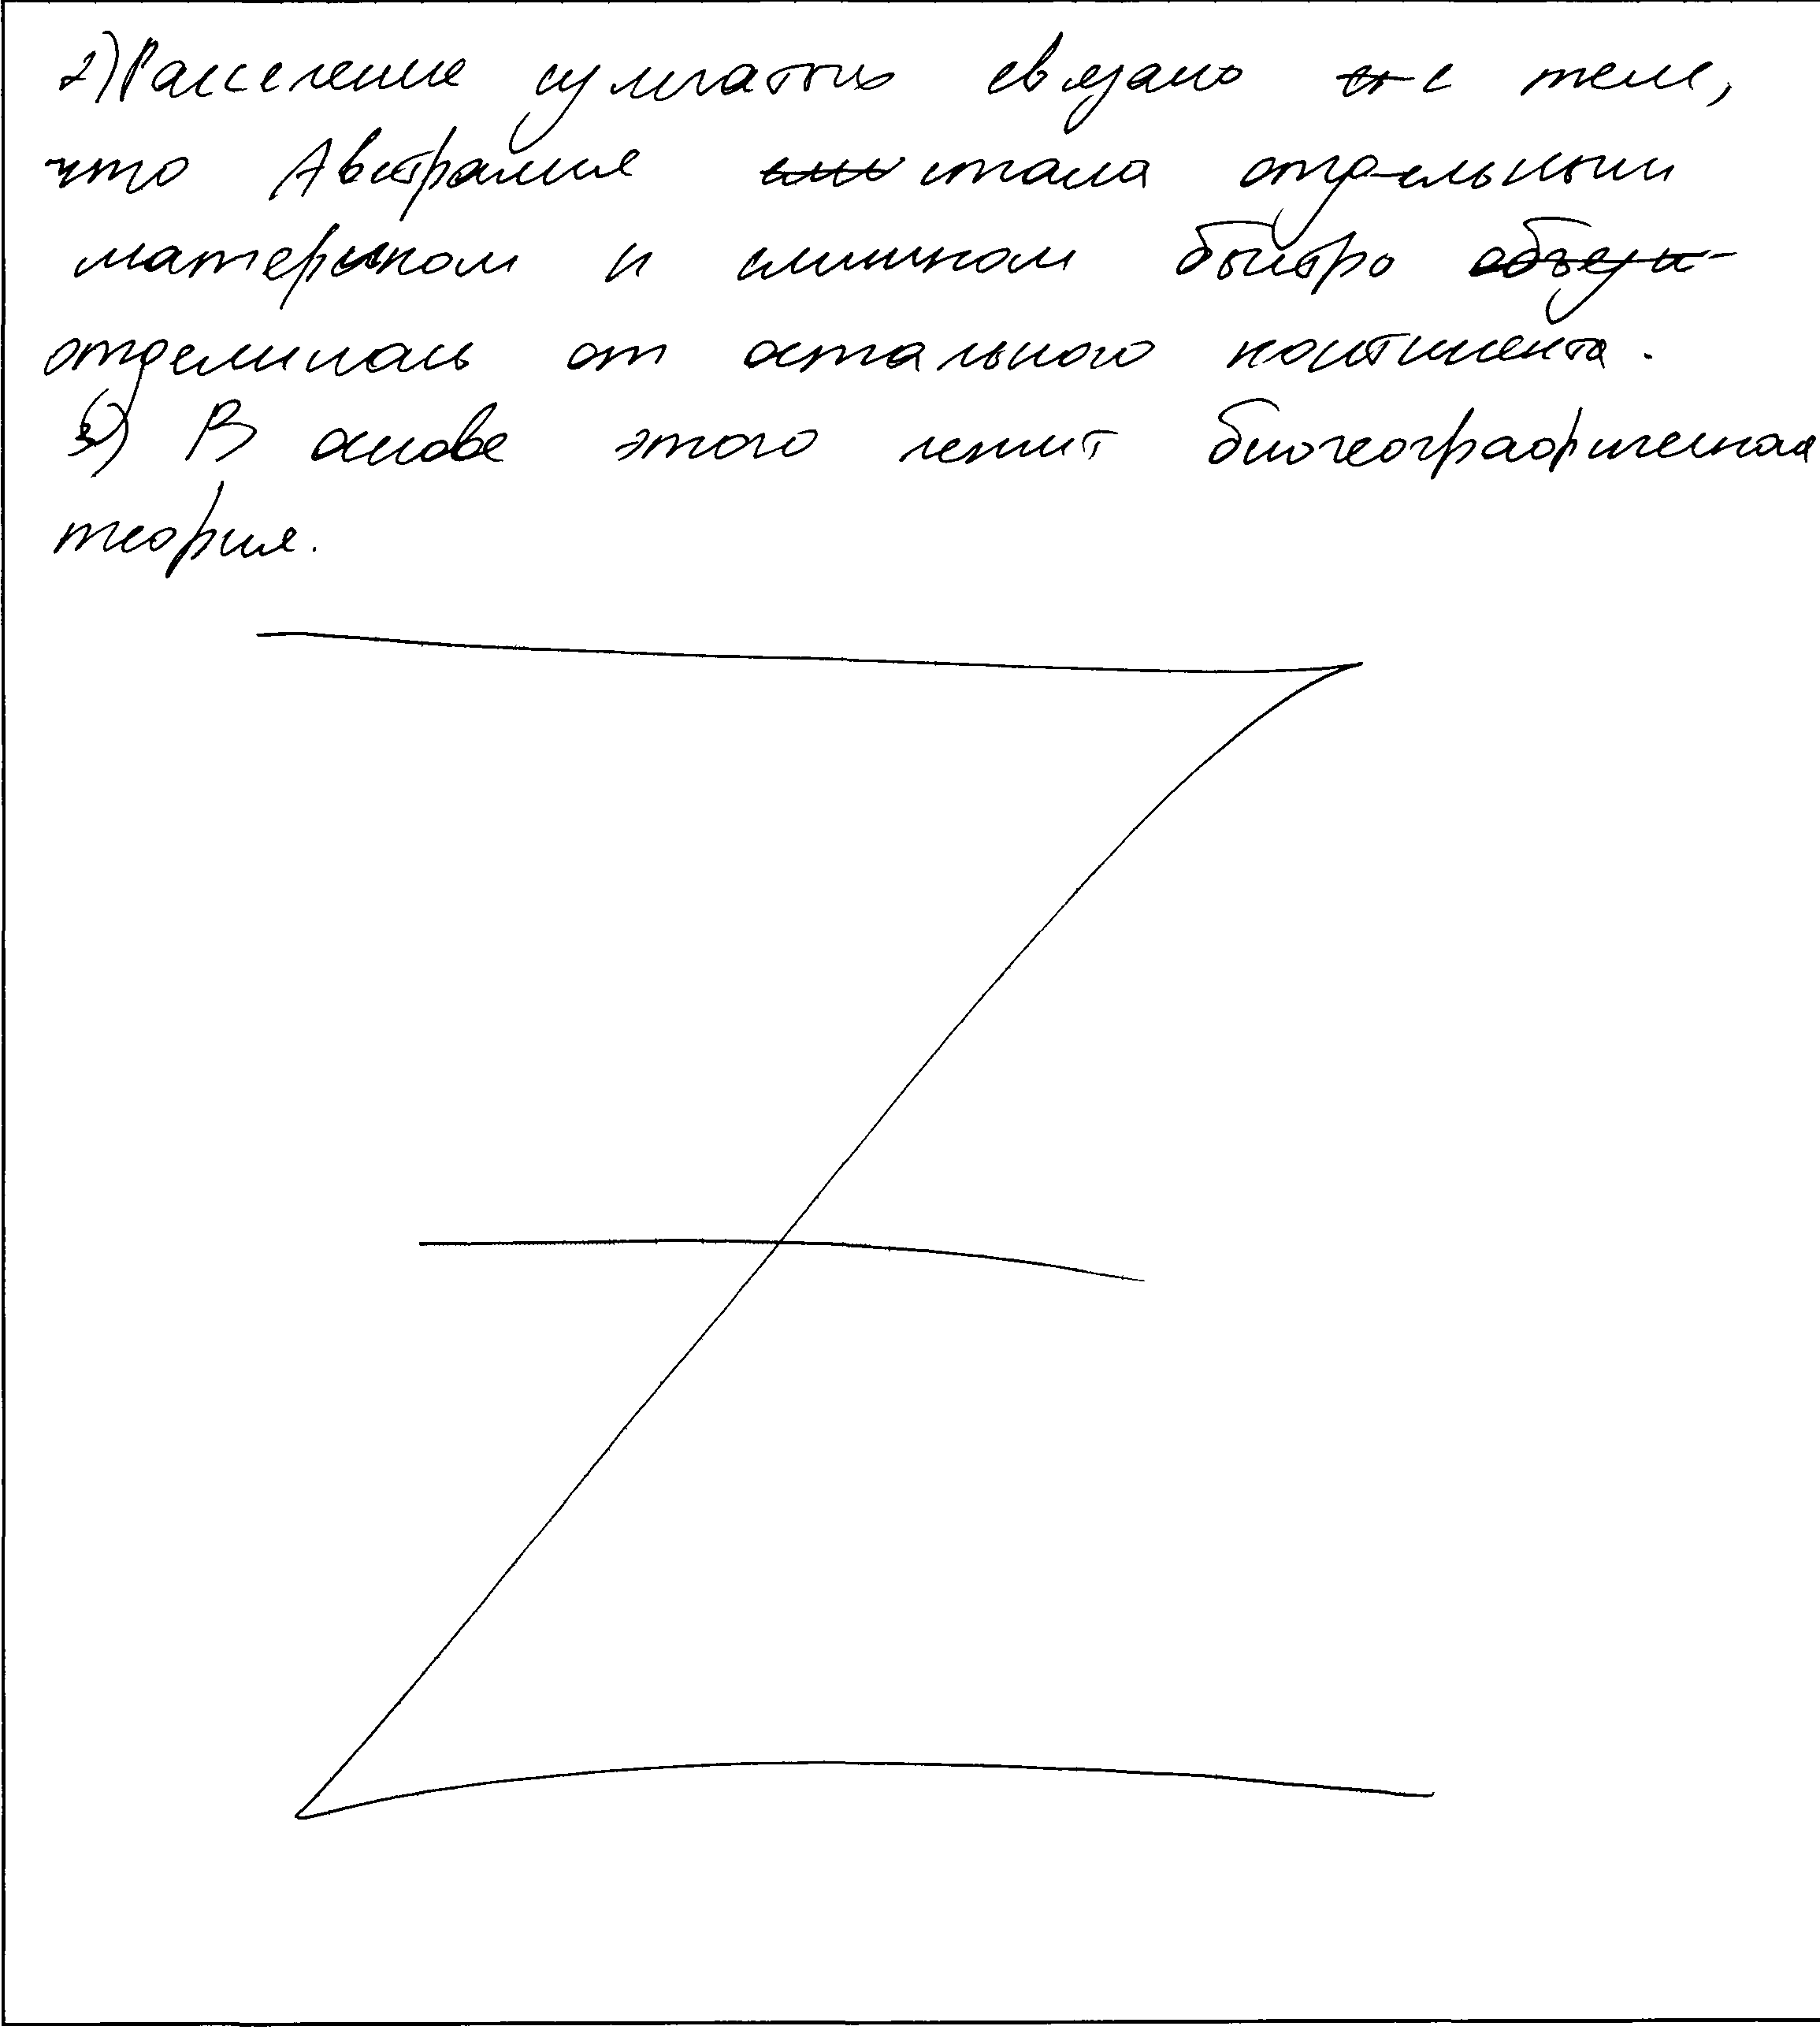 2) Расселение сумчатых связано с тем,
что Австралия стала отдельным
материком и слишком быстро
отделилась от остального континента.
3) В основе этого лежит биогеографическая
теория.